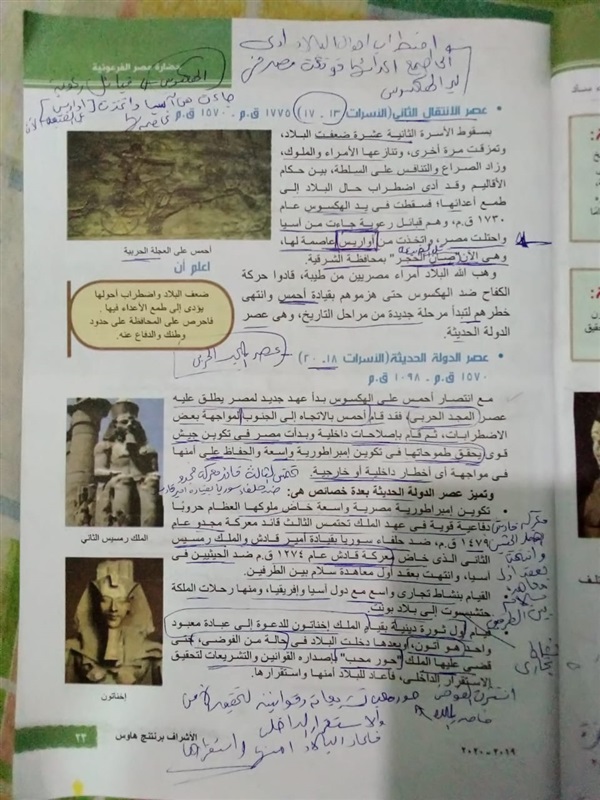 حضارة مصر الفرعونية
اضطراب احوال البلاد ادى
الهكسوس هى قبائل رعوية
جاءت من آسيا واتخذت [اواريس]
عاصمة لها
عصر الانتقال الثاني (الأسرات ١٣ ـ ١٧) ١٧٧٥ ق.م ـ ١٥٧٠ ق.م
بسقوط الأسرة الثانية عشرة ضعفت البلاد،
وتمزقت مرة أخرى، وتنازعها الأمراء والملوك،
وزاد الصراع والتنافس على السلطة، بين حكام
الأقاليم وقد أدى اضطراب حال البلاد إلى
طمع أعدائها؛ فسقطت في يد الهكسوس عام
١٧٣٠ ق.م، وهم قبائل رعوية جاءت من آسيا
واحتلت مصر، واتخذت من أواريس عاصمة لها،
وهى الآن "صان الحجر" بمحافظة الشرقية.
وهب الله البلاد أمراء مصريين من طيبة، قادوا حركة
الكفاح ضد الهكسوس حتى هزموهم بقيادة أحمس وانتهى
خطرهم لتبدأ مرحلة جديدة من مراحل التاريخ، وهى عصر
الدولة الحديثة.
أحمس على العجلة الحربية
اعلم أن
ضعف البلاد واضطراب أحولها
يؤدى إلى طمع الأعداء فيها .
فاحرص على المحافظة على حدود
وطنك والدفاع عنه.
عصر المجد الحربى
عصر الدولة الحديثة (الأسرات ١٨ ـ ٢٠)
١٥٧٠ ق.م ـ ١٠٩٨ ق.م
مع انتصار أحمس على الهكسوس بدأ عهد جديد لمصر يطلق عليه
عصر (المجد الحربى)، فقد قام أحمس بالاتجاه إلى الجنوب لمواجهة بعض
الاضطرابات، ثم قام بإصلاحات داخلية وبدأت مصر فى تكوين جيش
قوى يحقق طموحاتها فى تكوين إمبراطورية واسعة والحفاظ على أمنها
فى مواجهة أى أخطار داخلية أو خارجية.
وتميز عصر الدولة الحديثة بعدة خصائص هى:
تكوين إمبراطورية مصرية واسعة خاض ملوكها العظام حروبًا
دفاعية قوية فى عهد الملك تحتمس الثالث قائد معركة مجدو عام
١٤٧٩ ق.م، ضد حلفاء سوريا بقيادة أمير قادش والملك رمسيس
الثانى الذى خاض معركة قادش عام ١٢٧٤ ق.م ضد الحيثيين فى
آسيا، وانتهت بعقد أول معاهدة سلام بين الطرفين.
القيام بنشاط تجارى واسع مع دول آسيا وإفريقيا، ومنها رحلات الملكة
حتشبسوت إلى بلاد بونت.
قيام أول ثورة دينية بقيام الملك إخناتون للدعوة إلى عبادة معبود
واحد هو آتون، وبعدها دخلت البلاد فى حالة من الفوضى، حتى
قضى عليها الملك "حور محب" بإصداره القوانين والتشريعات لتحقيق
الاستقرار الداخلى، فأعاد للبلاد أمنها واستقرارها.
الملك رمسيس الثاني
إخناتون
نشاط
تجارى
والاستقرار الداخلى
فأعاد البلاد امنها واستقرارها
٢٣
الأشراف برنتنج هاوس
٢٠١٩ - ٢٠٢٠